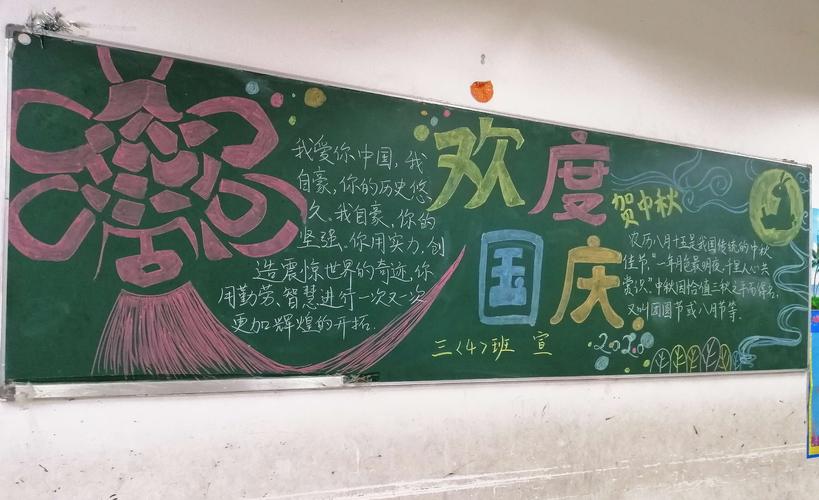 我爱你中国，我
自豪，你的历史悠
久。我自豪，你的
坚强、你用实力，创
造震惊世界的奇迹，你
用勤劳、智慧进行一次又一次
更加辉煌的开拓.
欢度
国庆
三<4>班 宣
贺中秋
农历八月十五是我国传统的中秋
佳节，"一年月色最明夜，千里人心共
赏识"中秋因恰值三秋之半而得名，
又叫团圆节或八月节等.
2020